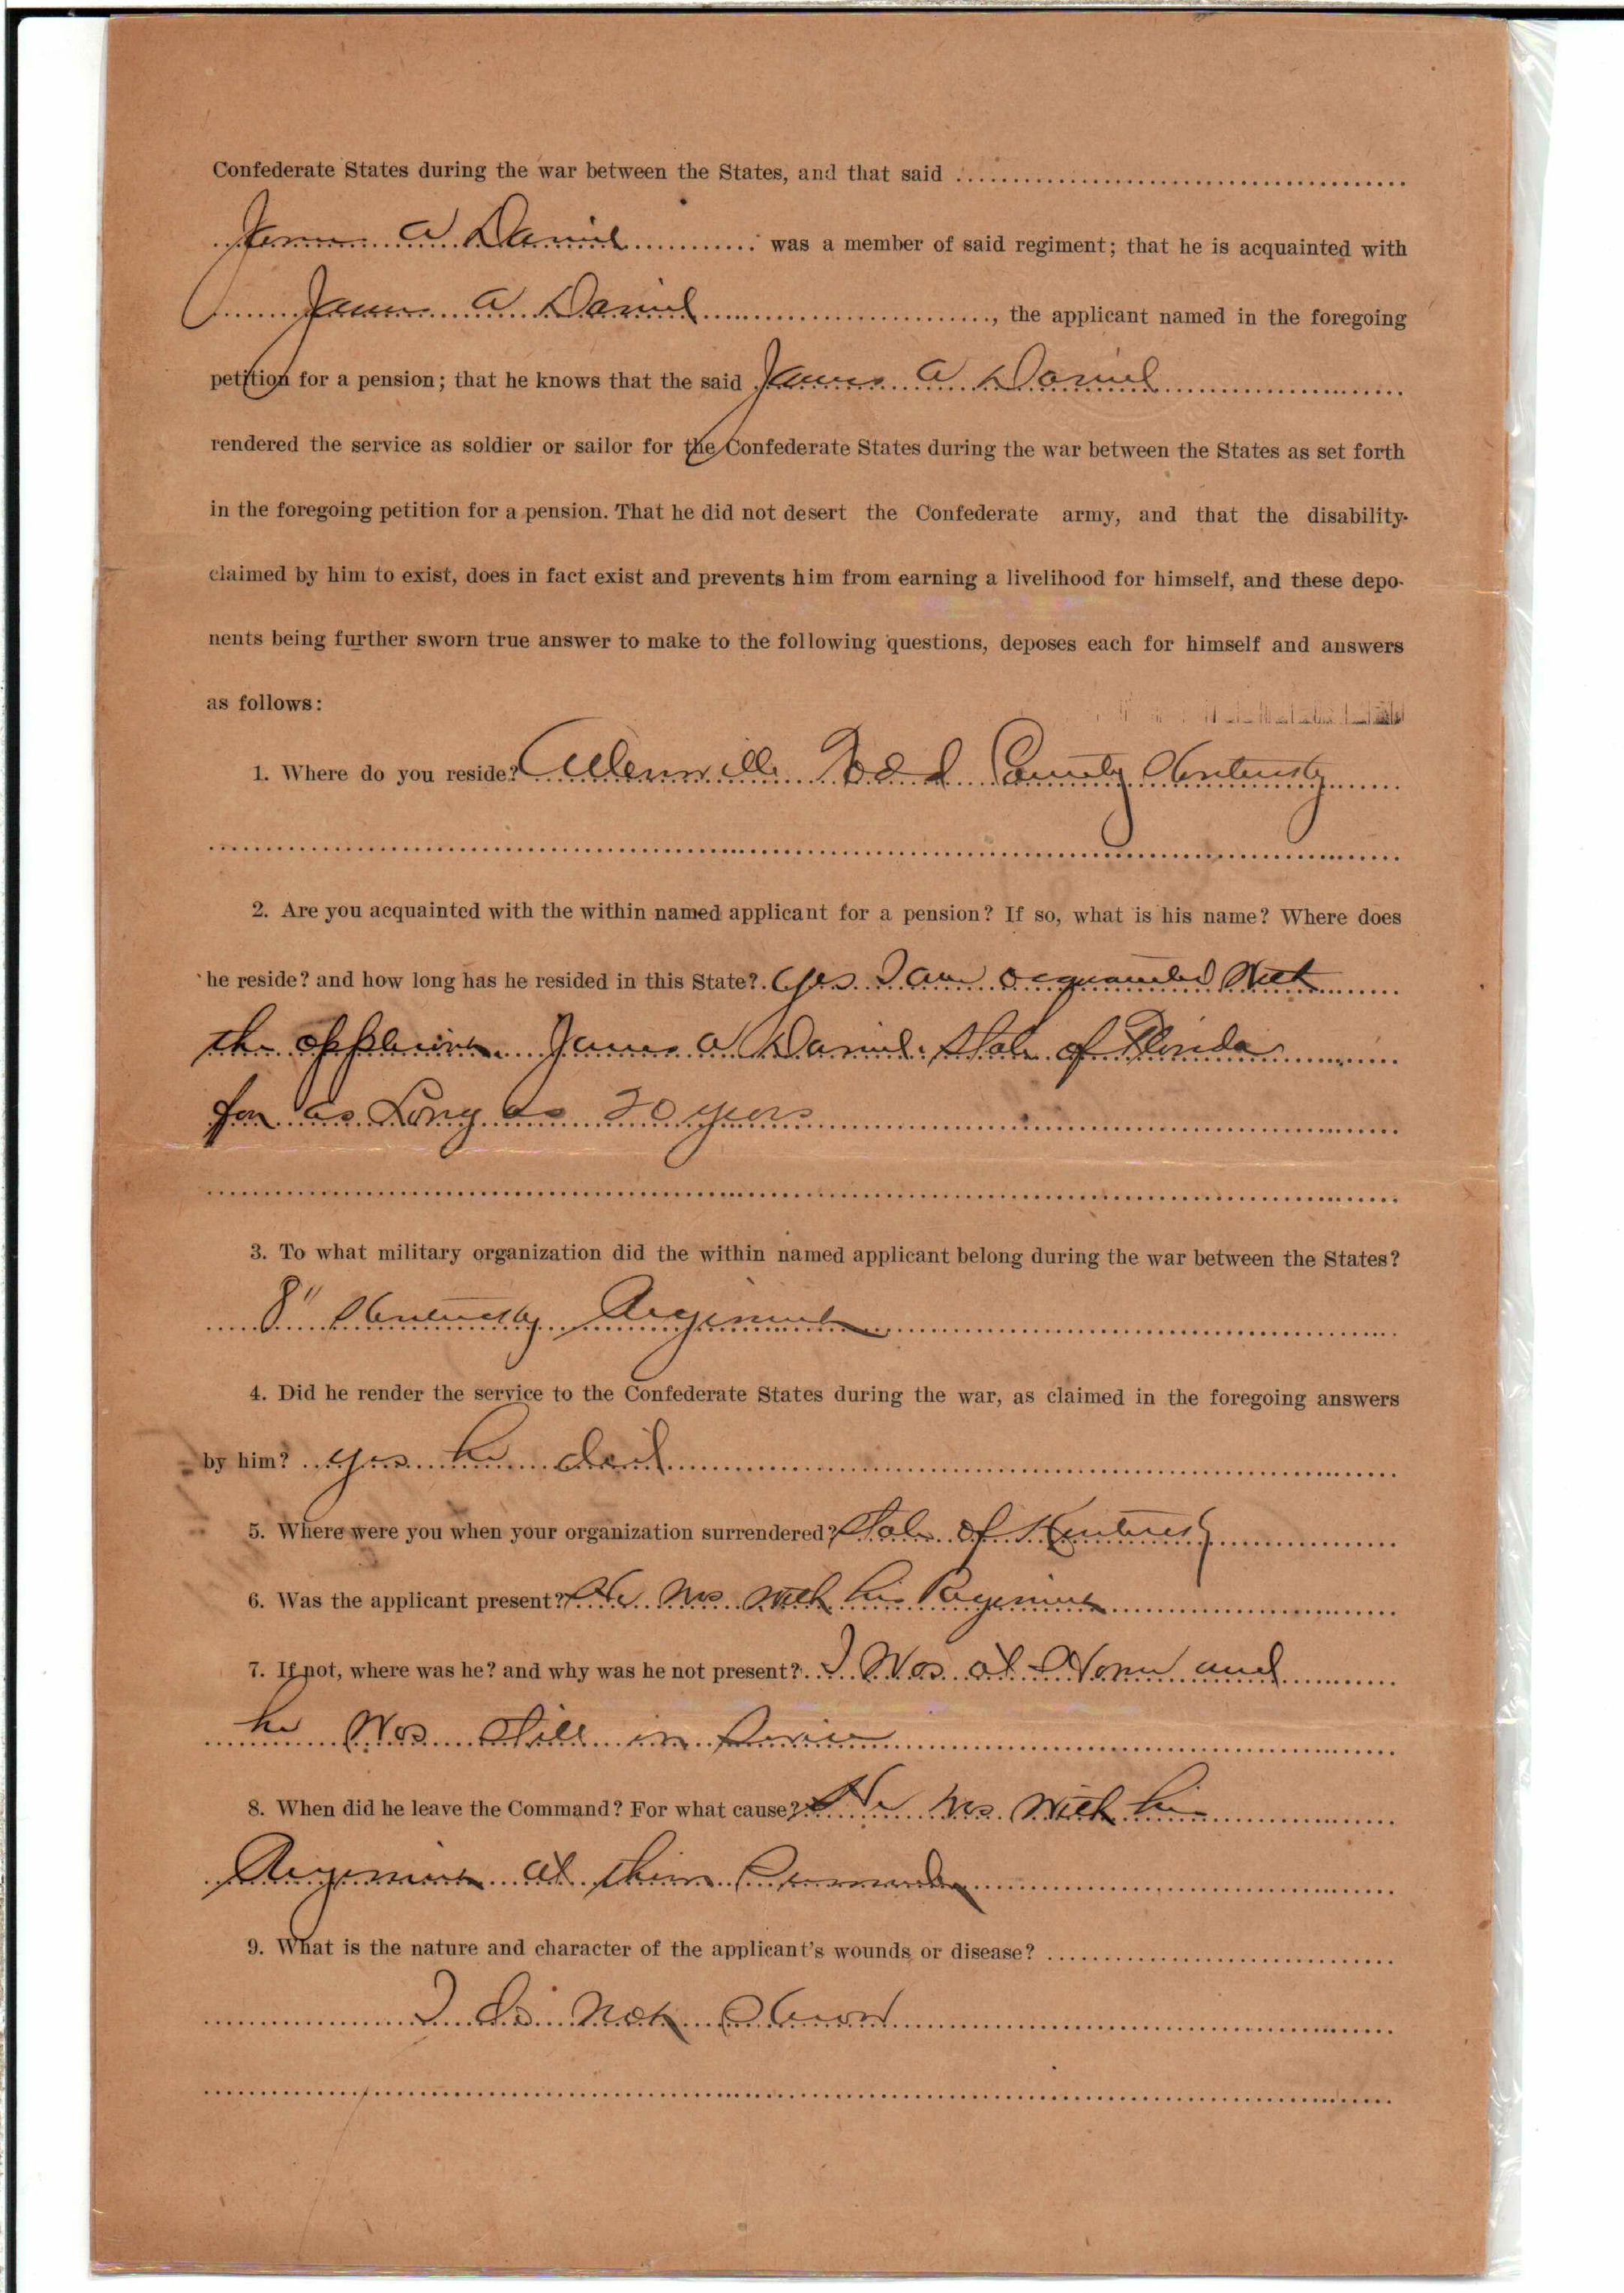 Confederate States during the war between the States, and that said
James A Daniel was a member of said regiment; that he is acquainted with
James A Daniel, the applicant named in the foregoing
petition for a pension; that he knows that the said James A Daniel
rendered the service as soldier or sailor for the Confederate States during the war between the States as set forth
in the foregoing petition for a pension. That he did not desert the Confederate army, and that the disability
claimed by him to exist, does in fact exist and prevents him from earning a livelihood for himself, and these depo-
nents being further sworn true answer to make to the following questions, deposes each for himself and answers
as follows:
1. Where do you reside? Allensville Todd County Kentucky
2. Are you acquainted with the within named applicant for a pension? If so, what is his name? Where does
he reside? and how long has he resided in this State? Yes I am acquainted With
the James A Daniel State of Florida
for as Long as 20 years
3. To what military organization did the within named applicant belong during the war between the States?
8" Kentucky Regiment
4. Did he render the service to the Confederate States during the war, as claimed in the foregoing answers
by him? yes he did
5. Where were you when your organization surrendered? State of Kentucky
6. Was the applicant present? He Was With his Regiment
7. If not, where was he? and why was he not present? I Was at Home and
he Was Still in Service
8. When did he leave the Command? For what cause? He Was With his
Regiment at
9. What is the nature and character of the applicant's wounds or disease?
I do Not Know